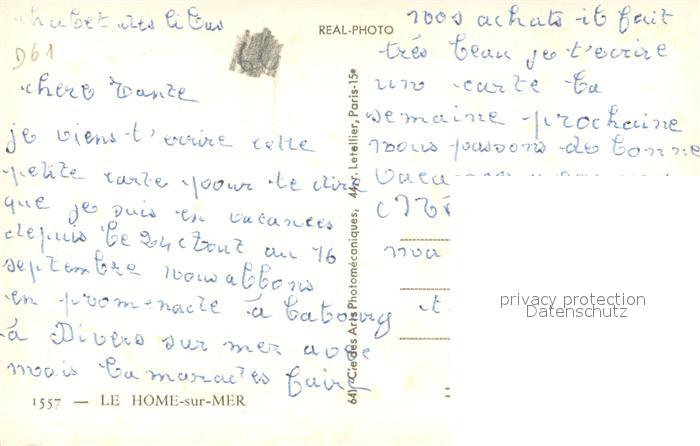 chalet des lilas
D61
chere Tante
je viens t'ecrire cette
petite carte pour te dire
que je suis en vacances
depuis le 24 Aout au 16
septembre nous allons
en promenade à Cabourg
à Divers sur mer avec
mais camarades faire
1557 — LE HOME-sur-MER
REAL-PHOTO
64) Cie des Arts Photomécaniques, 44, r. Letellier, Paris-15e
nos achats il fait
trés beau je t'ecrire
une carte la
semaine prochaine
nous passons de bonne
privacy protection
Datenschutz